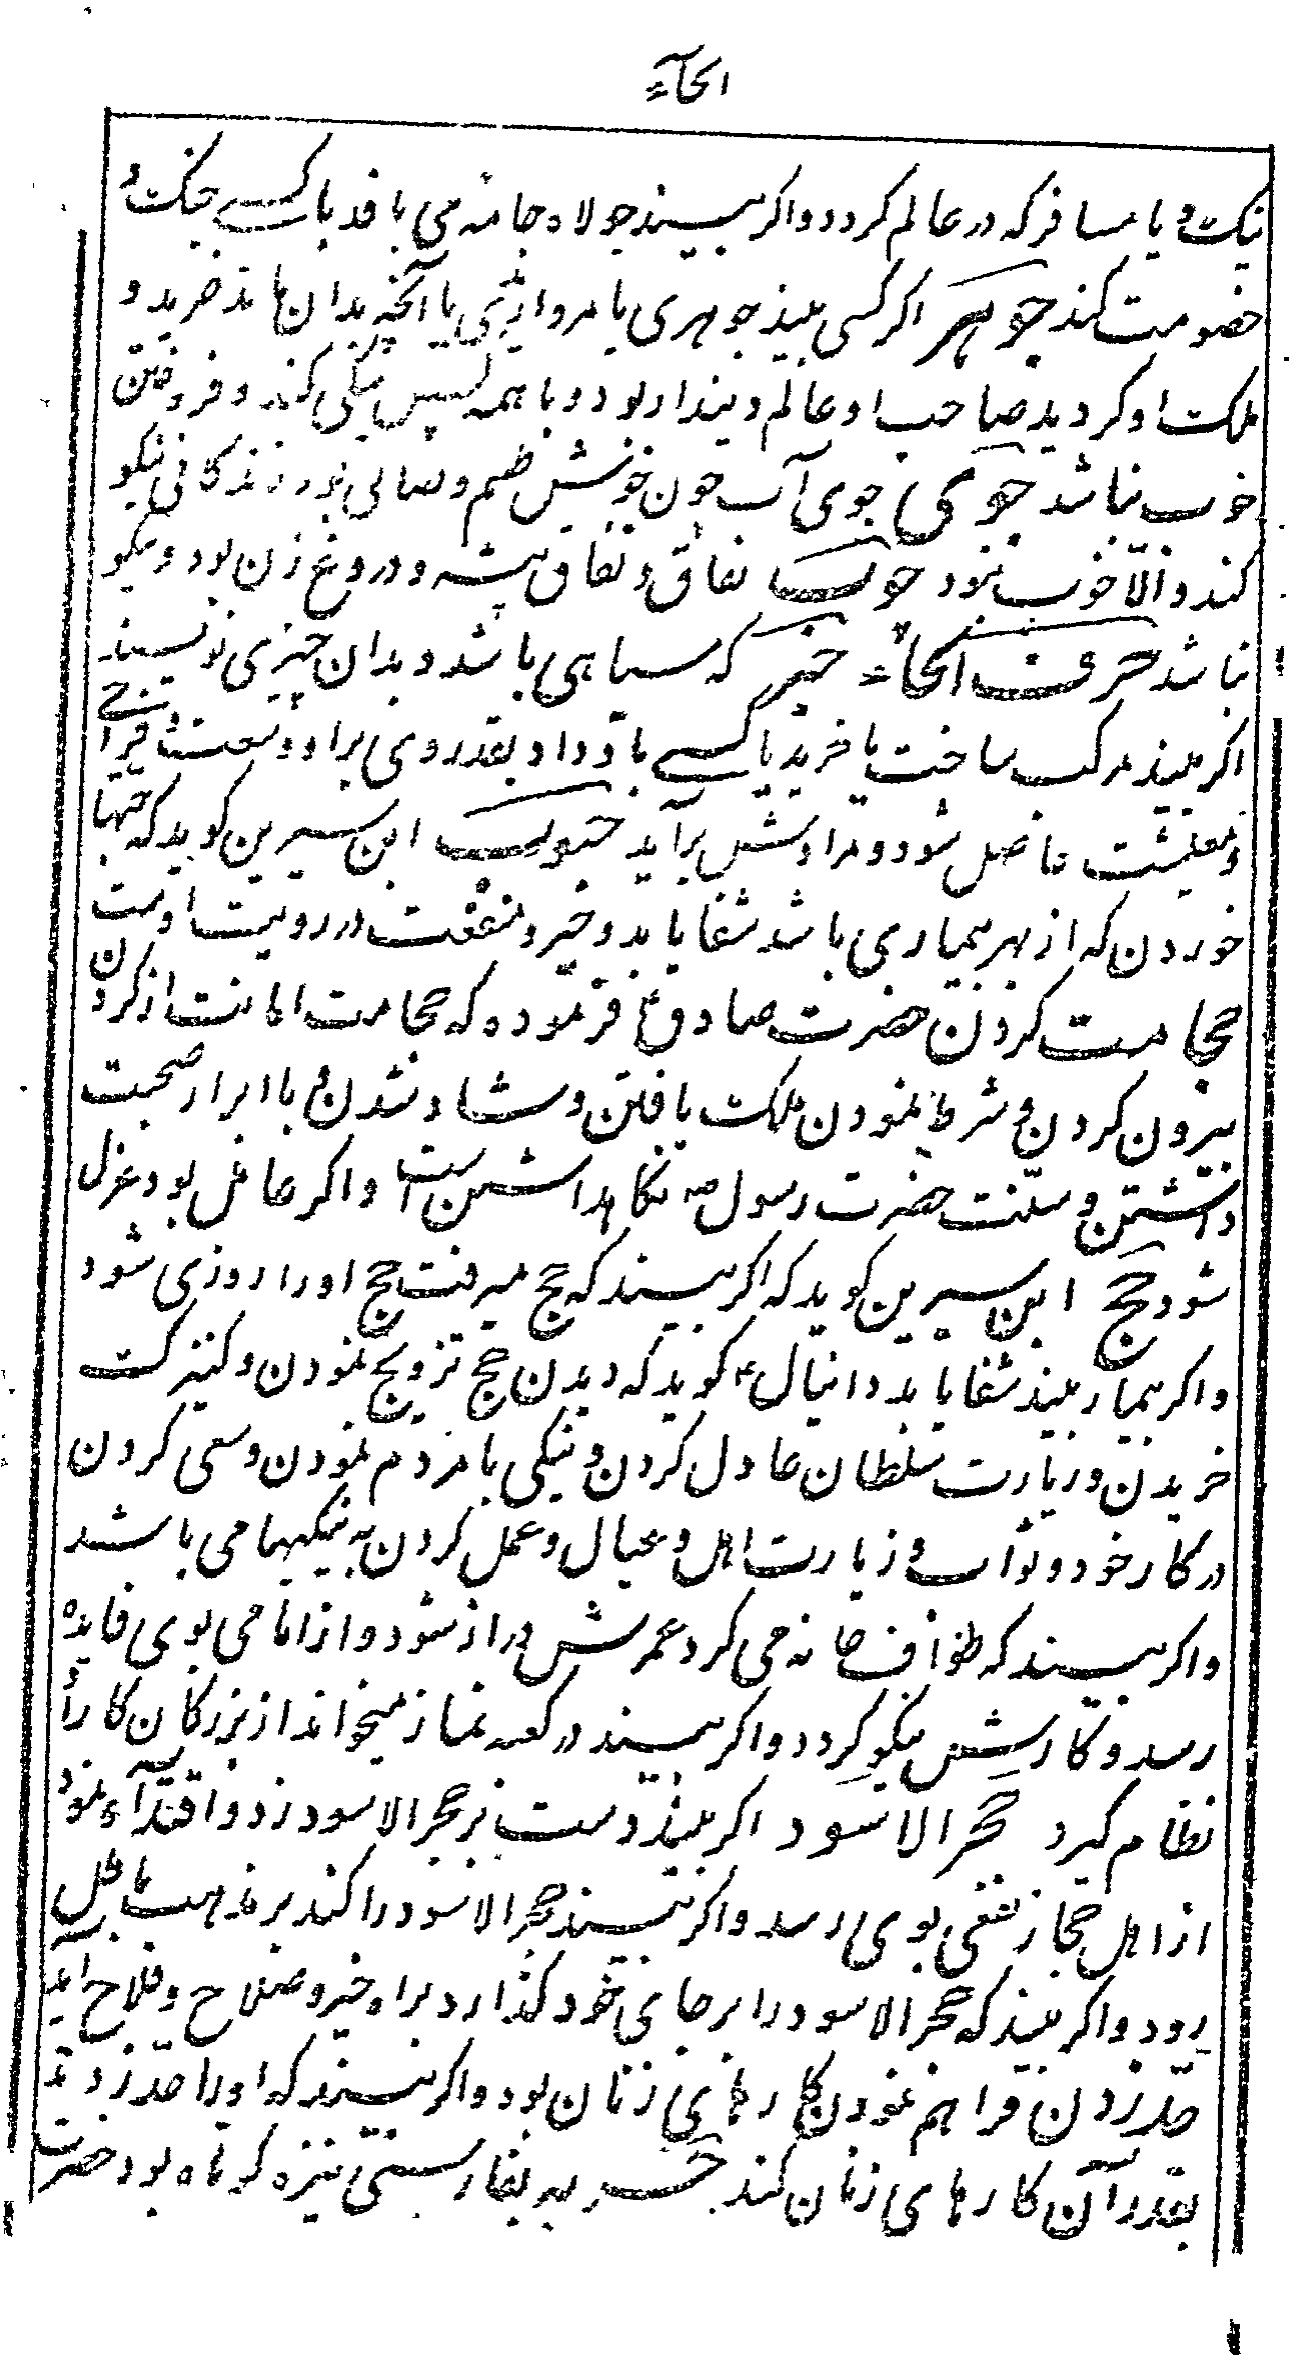 الحآء
نیک و یا مسافر که در عالم کردد واکر بیند جولاه جامه می بافد با کسے جنک و
خصومت کند جوهر اکر کسی بیند جوهری یا مرواریدی یا آنچه بدان ماند خرید و
ملک او کردید صاحب او عالم و دیندار بود و با همه کس نیکی کند و فروختن
خوب نباشد جوی جوی آب چون خوش طعم و صافی بود زندکانی نیکو
کند و الّا خوب نبود چوب نفاق و نفاق پیشه و دروغ زن بود و نیکو
نباشد حرف الحآء حبر که سیاهی باشد و بدان چیزی نویسند
اکر بیند مرکب ساخت یا خرید یا کسے باو داد بقدر وی براو وسعت و فراخے
و معیشت حاصل شود و مرادش برآید حبوب ابن سیرین کوید که حبها
خوردن که از بهر بیماری باشد شفا یابد و خیر و منفعت در رویت اوست
حجامت کردن حضرت صادق ع فرموده که حجامت امانت از کردن
بیرون کردن و شرط نمودن ملک یافتن و شاد شدن و با ابرار صحبت
داشتن و سنّت حضرت رسول ص نکاهداشتن است واکر عامل بود عزل
شود حج ابن سیرین کوید که اکر بیند که حج میرفت حج او را روزی شود
واکر بیمار بیند شفا یابد دانیال ع کوید که دیدن حج تزویج نمودن و کنیزک
خریدن و زیارت سلطان عادل کردن و نیکی با مردم نمودن و سعی کردن
در کار خود و ثواب و زیارت اهل و عیال و عمل کردن به نیکیها می باشد
واکر بیند که طواف خانه می کرد عمرش دراز شود و از امامی بوی فایده
رسد و کارش نیکو کردد واکر بیند در کعبه نماز میخواند از بزرکان کارا
نظام کیرد حجر الاسود اکر بیند دست بر حجر الاسود زد و اقتدآء نمود
از اهل حجاز نفعی بوی رسد واکر بیند حجر الاسود را کند بر مذهب باطل
رود واکر بیند که حجر الاسود را بر جای خود کذارد براه خیر و صلاح و فلاح آید
حدّ زدن فراهم نمودن کارهای زنان بود واکر بیند که او را حد زدند
بقدر آن کارهای زنان کند حربه بفارستی نیزه کوتاه بود حضرت